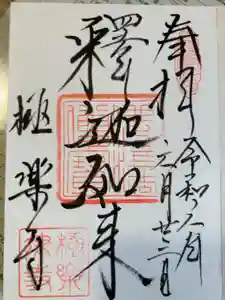 奉拝
令和六年
六月廿三日
釋迦如来
極楽寺